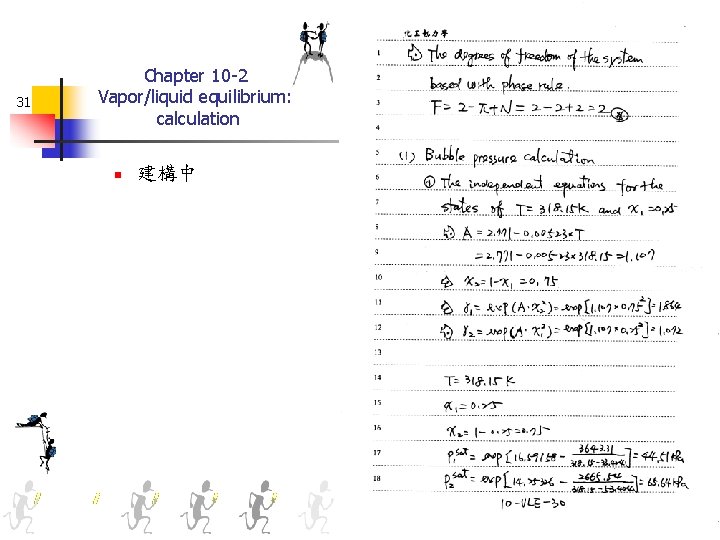 31
Chapter 10-2
Vapor/liquid equilibrium:
calculation
建構中
化工熱力學
1 The degrees of freedom of the system
2 based with phase rule.
3 F=2-π+N=2-2+2=2
4
5 (1) Bubble pressure calculation
6 ① The independent equations for the
7 states of T=318.15K and x₁=0.25
8 A=2.771-0.00523×T
9 =2.771-0.00523×318.15=1.107
10 x₂=1-x₁=0.75
11 γ₁=exp(A·x₂²)=exp[1.107×0.75²]=1.864
12 γ₂=exp(A·x₁²)=exp[1.107×0.25²]=1.072
13
14 T=318.15K
15 x₁=0.25
16 x₂=1-0.25=0.75
17 P₁ˢᵃᵗ=exp[16.59158-3643.31/(318.15-33.424)]=44.51kPa
18 P₂ˢᵃᵗ=exp[14.25326-2665.54/(318.15-53.424)]=65.64kPa
10-VLE-30